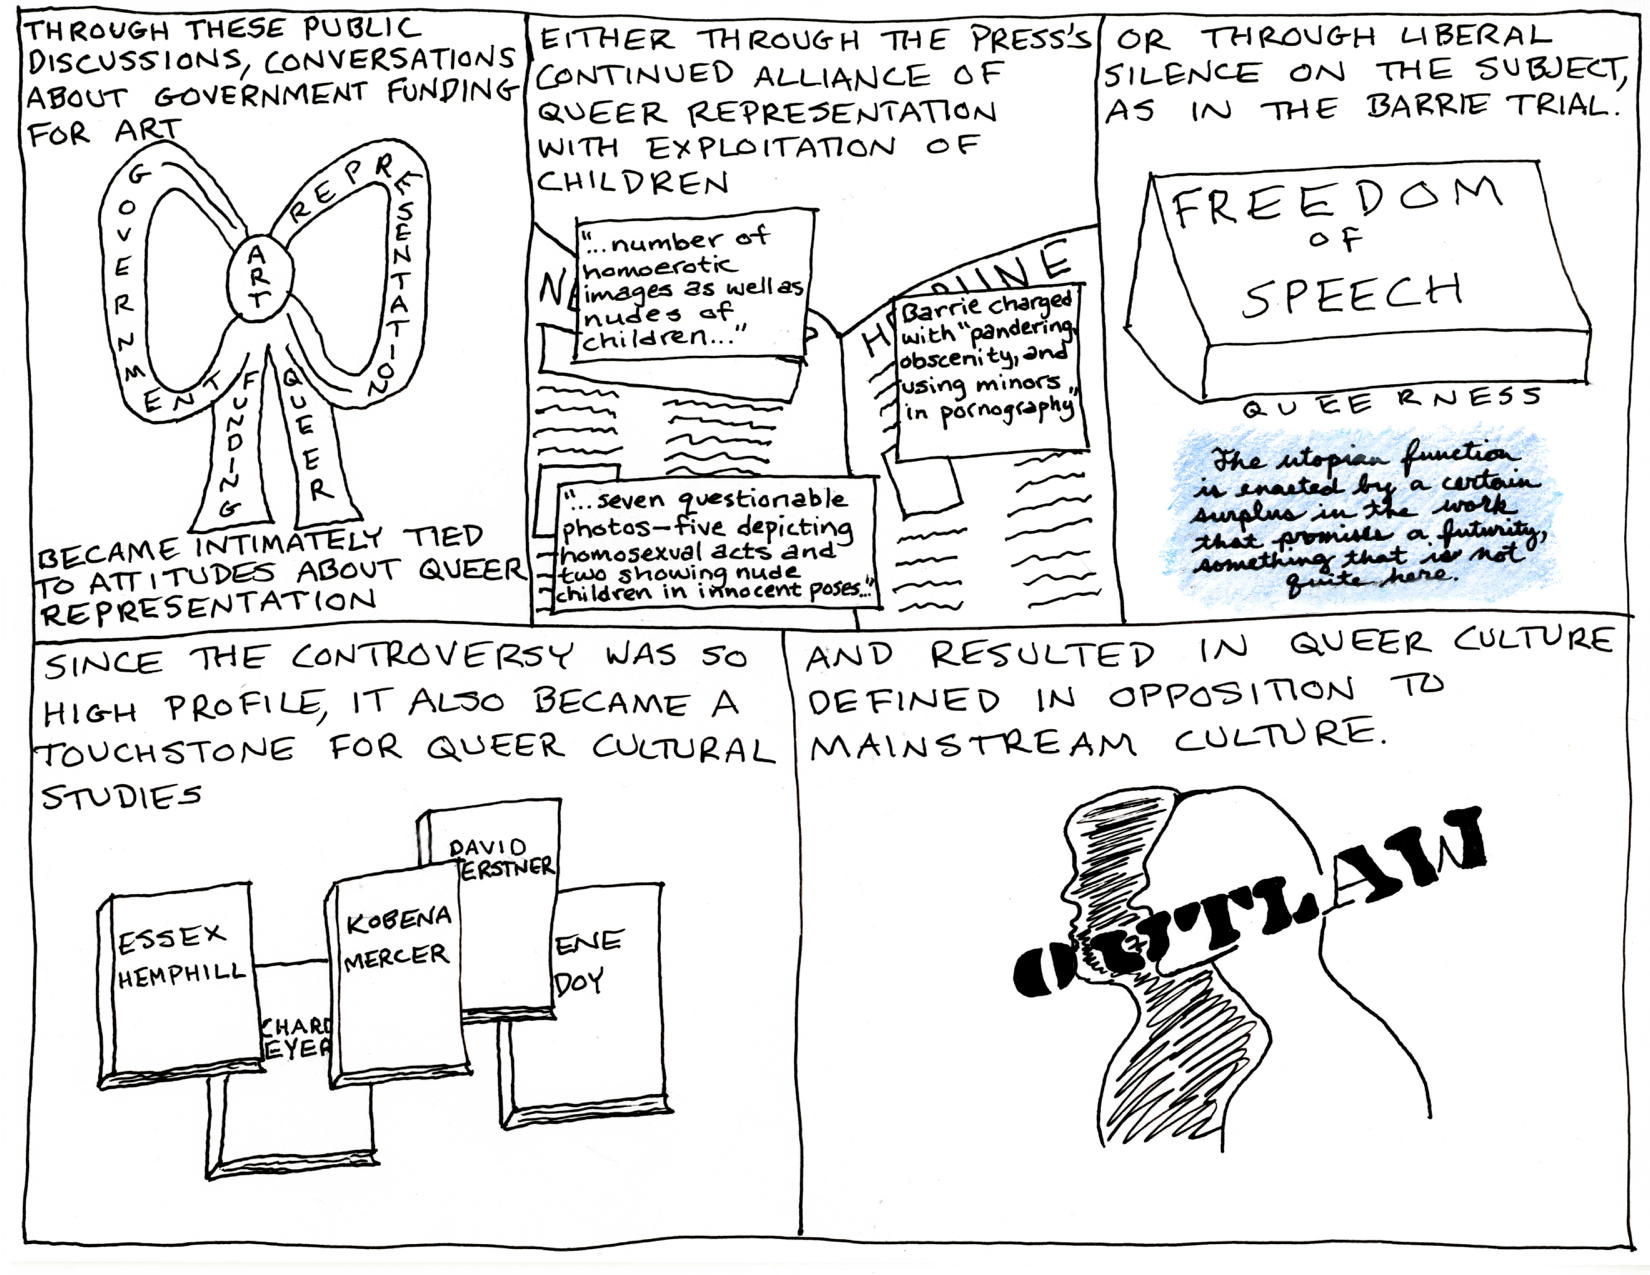 THROUGH THESE PUBLIC
DISCUSSIONS, CONVERSATIONS
ABOUT GOVERNMENT FUNDING
FOR ART
GOVERNMENT
REPRESENTATION
ART
FUNDING
QUEER
BECAME INTIMATELY TIED
TO ATTITUDES ABOUT QUEER
REPRESENTATION
EITHER THROUGH THE PRESS'S
CONTINUED ALLIANCE OF
QUEER REPRESENTATION
WITH EXPLOITATION OF
CHILDREN
"...number of
homoerotic
images as well as
nudes of
children..."
Barrie charged
with "pandering,
obscenity, and
using minors
in pornography"
"...seven questionable
photos—five depicting
homosexual acts and
two showing nude
children in innocent poses..."
OR THROUGH LIBERAL
SILENCE ON THE SUBJECT,
AS IN THE BARRIE TRIAL.
FREEDOM
OF
SPEECH
QUEERNESS
The utopian function
is enacted by a certain
surplus in the work
that promises a futurity,
something that is not
quite here.
SINCE THE CONTROVERSY WAS SO
HIGH PROFILE, IT ALSO BECAME A
TOUCHSTONE FOR QUEER CULTURAL
STUDIES
DAVID
ERSTNER
ESSEX
HEMPHILL
KOBENA
MERCER
ENE
DOY
CHARD
EYER
AND RESULTED IN QUEER CULTURE
DEFINED IN OPPOSITION TO
MAINSTREAM CULTURE.
OUTLAW